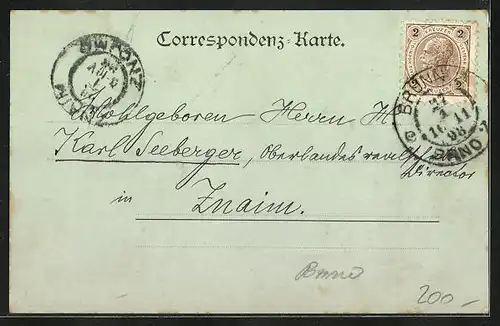 Correspondenz-Karte.
2 KREUZER 2
ZNOJMO
ZNAIM
BRÜNN
BRNO
98
Wohlgeboren Herrn H
Karl Seeberger, Oberlandes
Director
in Znaim.
Brno
200-